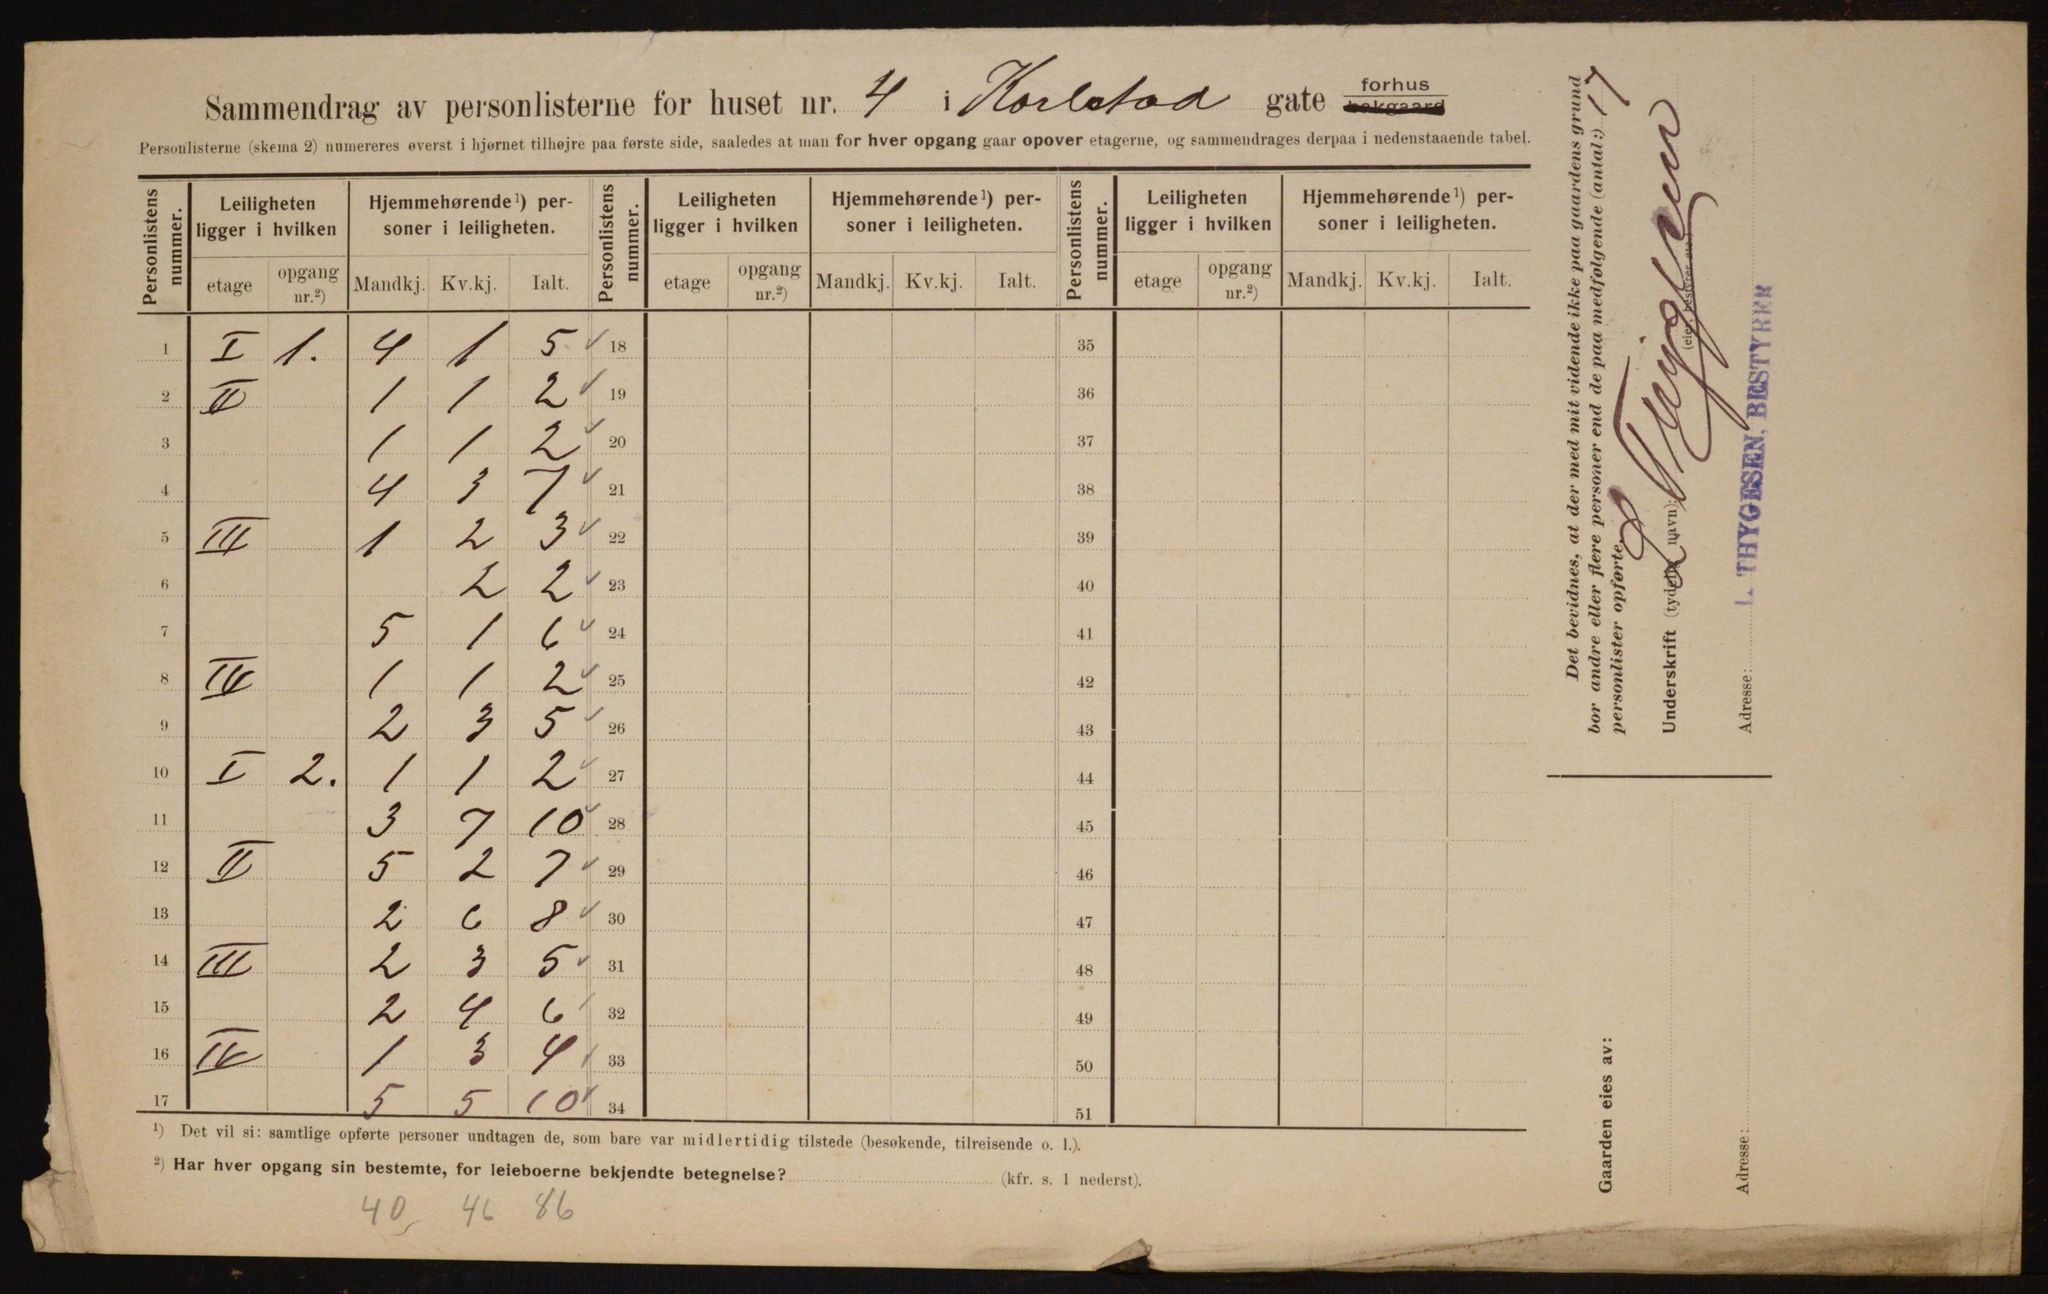 Sammendrag av personlisterne for huset nr. 4 i Karlstad gate forhus bakgaard
Personlisterne (skema 2) numereres øverst i hjørnet tilhøjre paa første side, saaledes at man for hver opgang gaar opover etagerne, og sammendrages derpaa i nedenstaaende tabel.
Personlistens nummer. Leiligheten ligger i hvilken Hjemmehørende¹) personer i leiligheten. Personlistens nummer. Leiligheten ligger i hvilken Hjemmehørende¹) personer i leiligheten. Personlistens nummer. Leiligheten ligger i hvilken Hjemmehørende¹) personer i leiligheten.
etage opgang nr.²) Mandkj. Kv.kj. Ialt. etage opgang nr.²) Mandkj. Kv.kj. Ialt. etage opgang nr.²) Mandkj. Kv.kj. Ialt.
1 I 1. 4 1 5 ✓ 18 35
2 II 1 1 2 ✓ 19 36
3 1 1 2 ✓ 20 37
4 4 3 7 ✓ 21 38
5 III 1 2 3 ✓ 22 39
6 2 2 ✓ 23 40
7 5 1 6 ✓ 24 41
8 IV 1 1 2 ✓ 25 42
9 2 3 5 ✓ 26 43
10 I 2. 1 1 2 ✓ 27 44
11 3 7 10 ✓ 28 45
12 II 5 2 7 ✓ 29 46
13 2 6 8 ✓ 30 47
14 III 2 3 5 ✓ 31 48
15 2 4 6 ✓ 32 49
16 IV 1 3 4 ✓ 33 50
17 5 5 10 ✓ 34 51
¹) Det vil si: samtlige opførte personer undtagen de, som bare var midlertidig tilstede (besøkende, tilreisende o. l.).
²) Har hver opgang sin bestemte, for leieboerne bekjendte betegnelse? (kfr. s. 1 nederst).
40 46 86
Det bevidnes, at der med mit vidende ikke paa gaardens grund
bor andre eller flere personer end de paa medfølgende (antal:) 17
personlister opførte.
Underskrift (tydelig navn): L Thygesen
(eier, bestyrer etc.)
Adresse: L. THYGESEN, BESTYRER
Gaarden eies av:
Adresse: